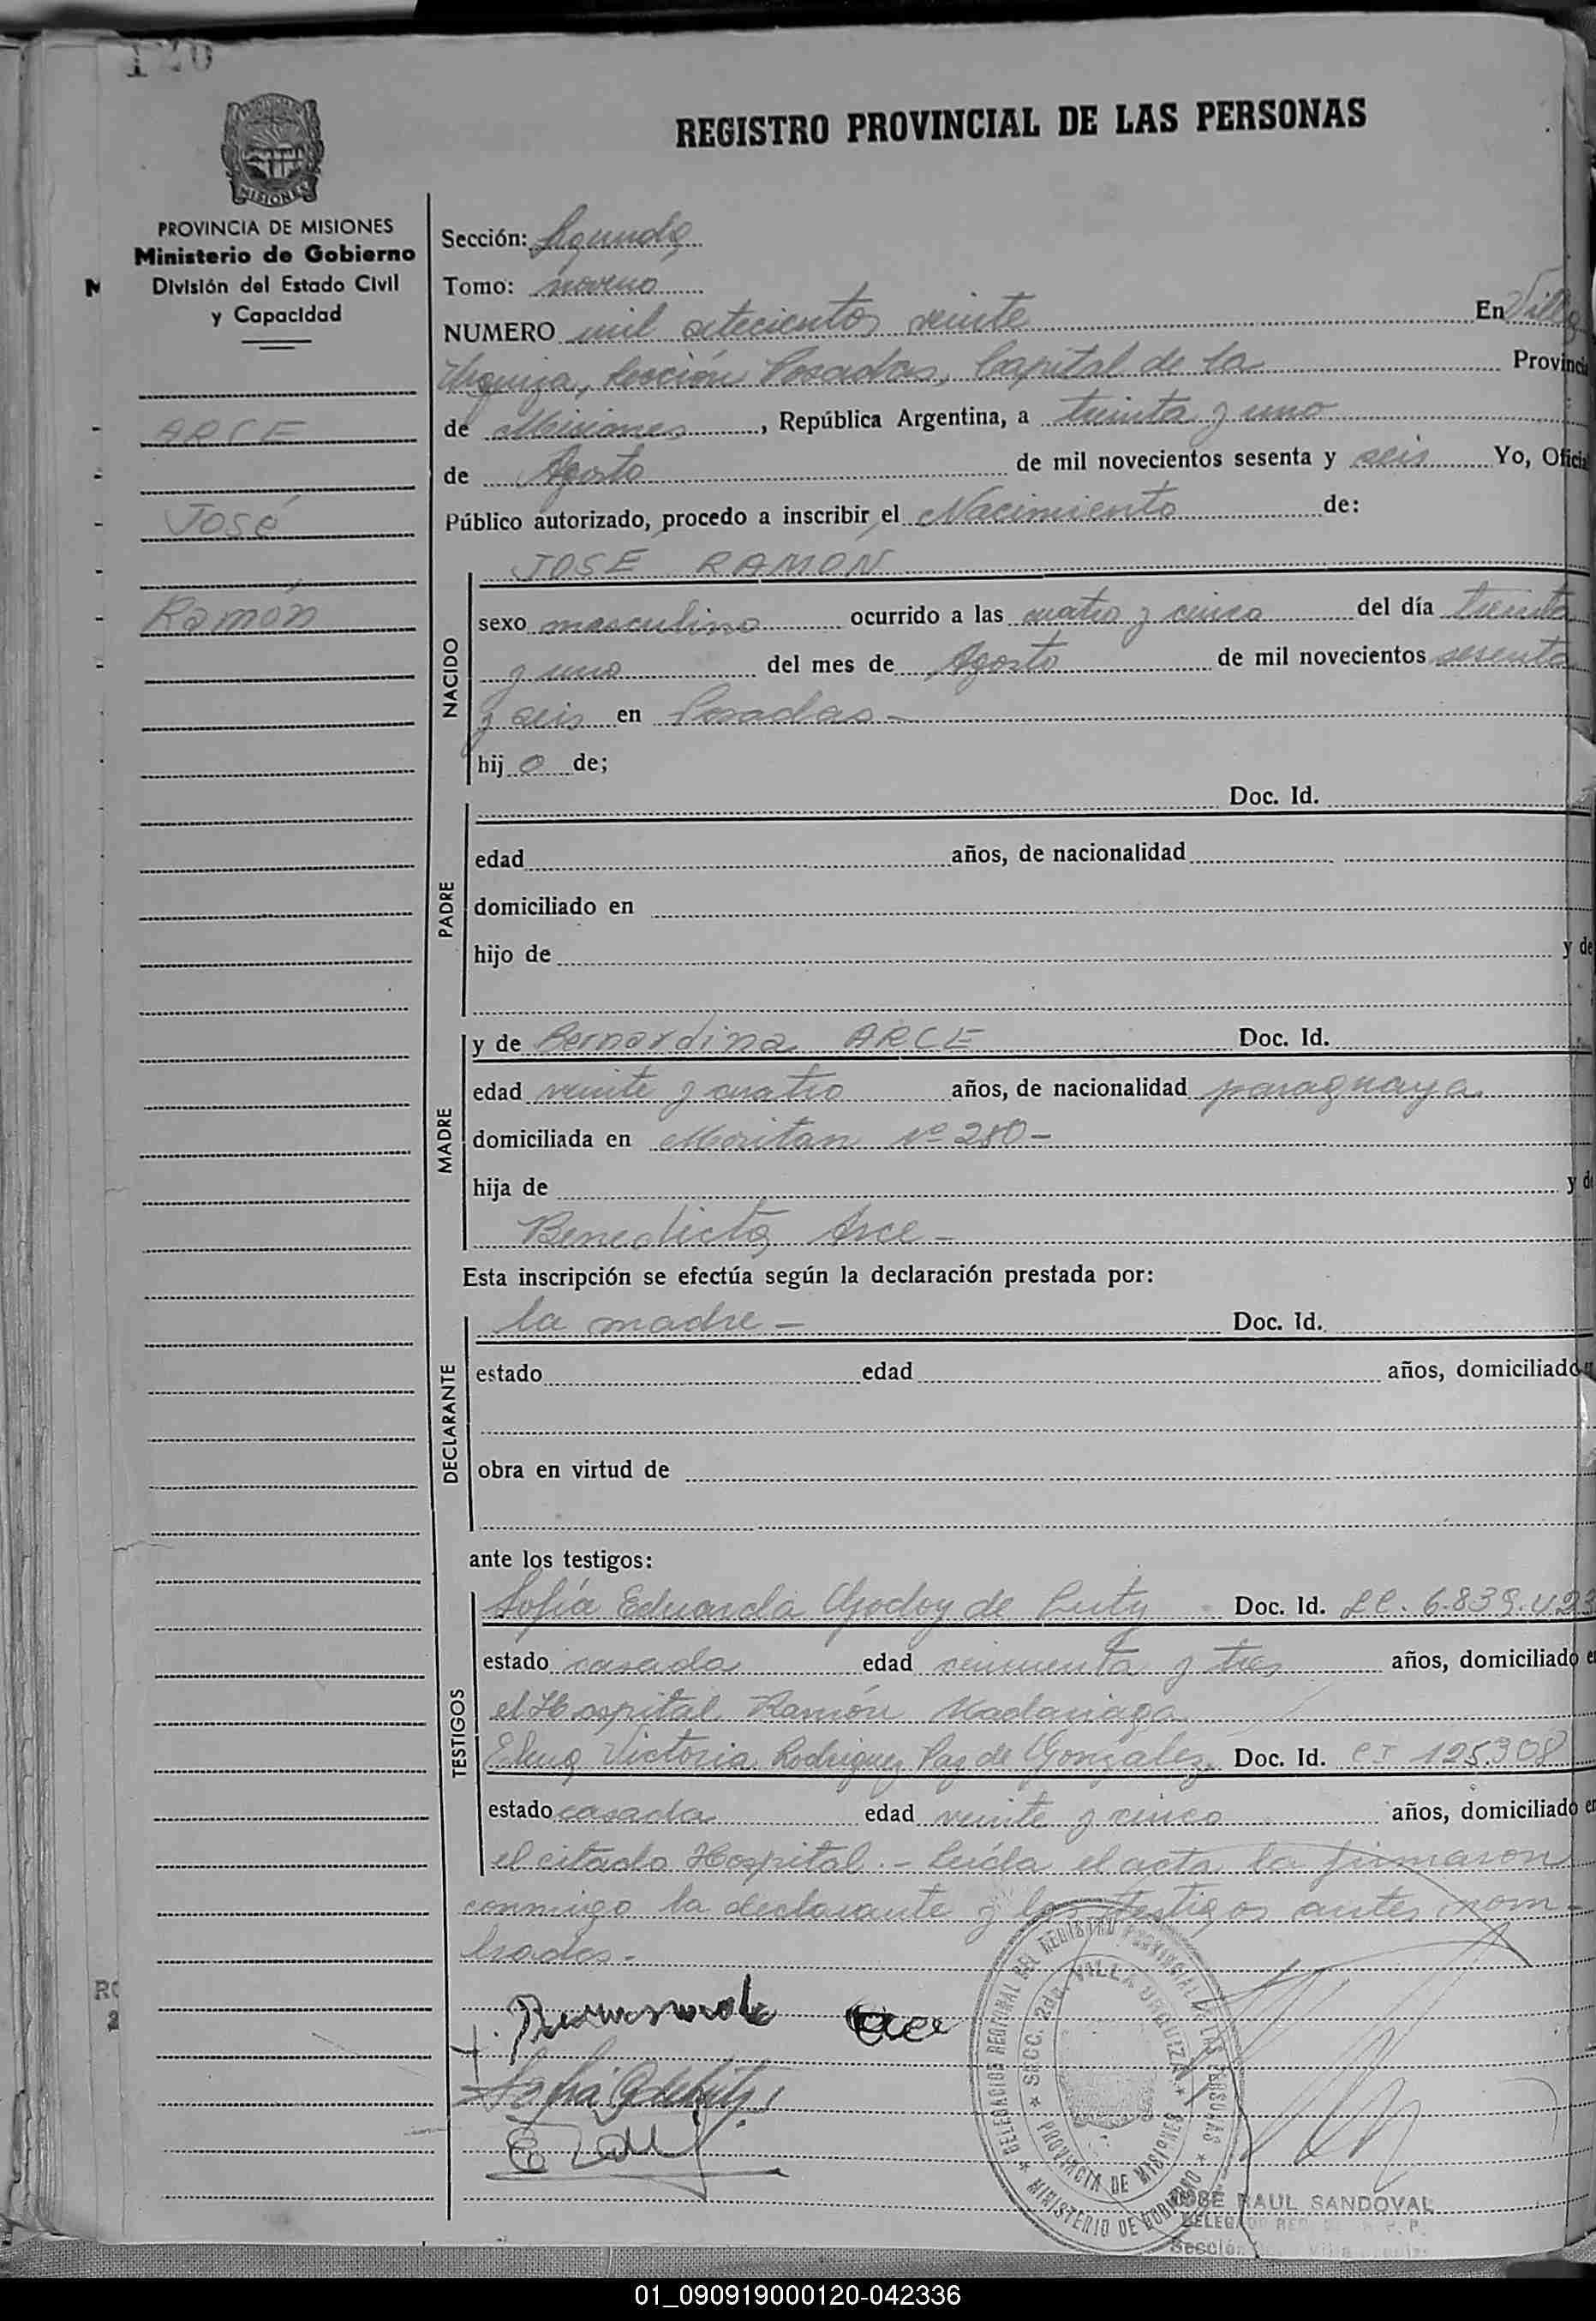 120
MISIONES
PROVINCIA DE MISIONES
Ministerio de Gobierno
División del Estado Civil
y Capacidad
ARCE
José
Ramón
REGISTRO PROVINCIAL DE LAS PERSONAS
Sección: Segunda
Tomo: noveno
NUMERO mil setecientos veinte En Villa
Urquiza, Sección Posadas, Capital de la Provincia
de Misiones, República Argentina, a treinta y uno
de Agosto de mil novecientos sesenta y seis Yo, Oficial
Público autorizado, procedo a inscribir el Nacimiento de:
JOSE RAMON
NACIDO
sexo masculino ocurrido a las cuatro y cinco del día treinta
y uno del mes de Agosto de mil novecientos sesenta
y seis en Posadas -
hij o de;
PADRE
Doc. Id.
edad años, de nacionalidad
domiciliado en
hijo de y de
MADRE
y de Bernardina ARCE Doc. Id.
edad veinte y cuatro años, de nacionalidad paraguaya
domiciliada en Nº 280 -
hija de y de
Benedicta Arce -
Esta inscripción se efectúa según la declaración prestada por:
DECLARANTE
la madre - Doc. Id.
estado edad años, domiciliado en
obra en virtud de
ante los testigos:
TESTIGOS
Sofía Eduarda Godoy de Doc. Id. LC. 6.839.423
estado casada edad cincuenta y tres años, domiciliado en
el Hospital Ramón Madariaga
Victoria Rodriguez Paz de Gonzalez Doc. Id. CI 125.308
estado casada edad veinte y cinco años, domiciliado en
el citado Hospital. - Leída el acta la firmaron
conmigo la declarante y los testigos antes nom-
brados. -
DELEGACION REGIONAL DEL REGISTRO PROVINCIAL DE LAS PERSONAS * MINISTERIO DE GOBIERNO *
* SECC. 2da. VILLA URQUIZA * PROVINCIA DE MISIONES
JOSE RAUL SANDOVAL
01_090919000120-042336